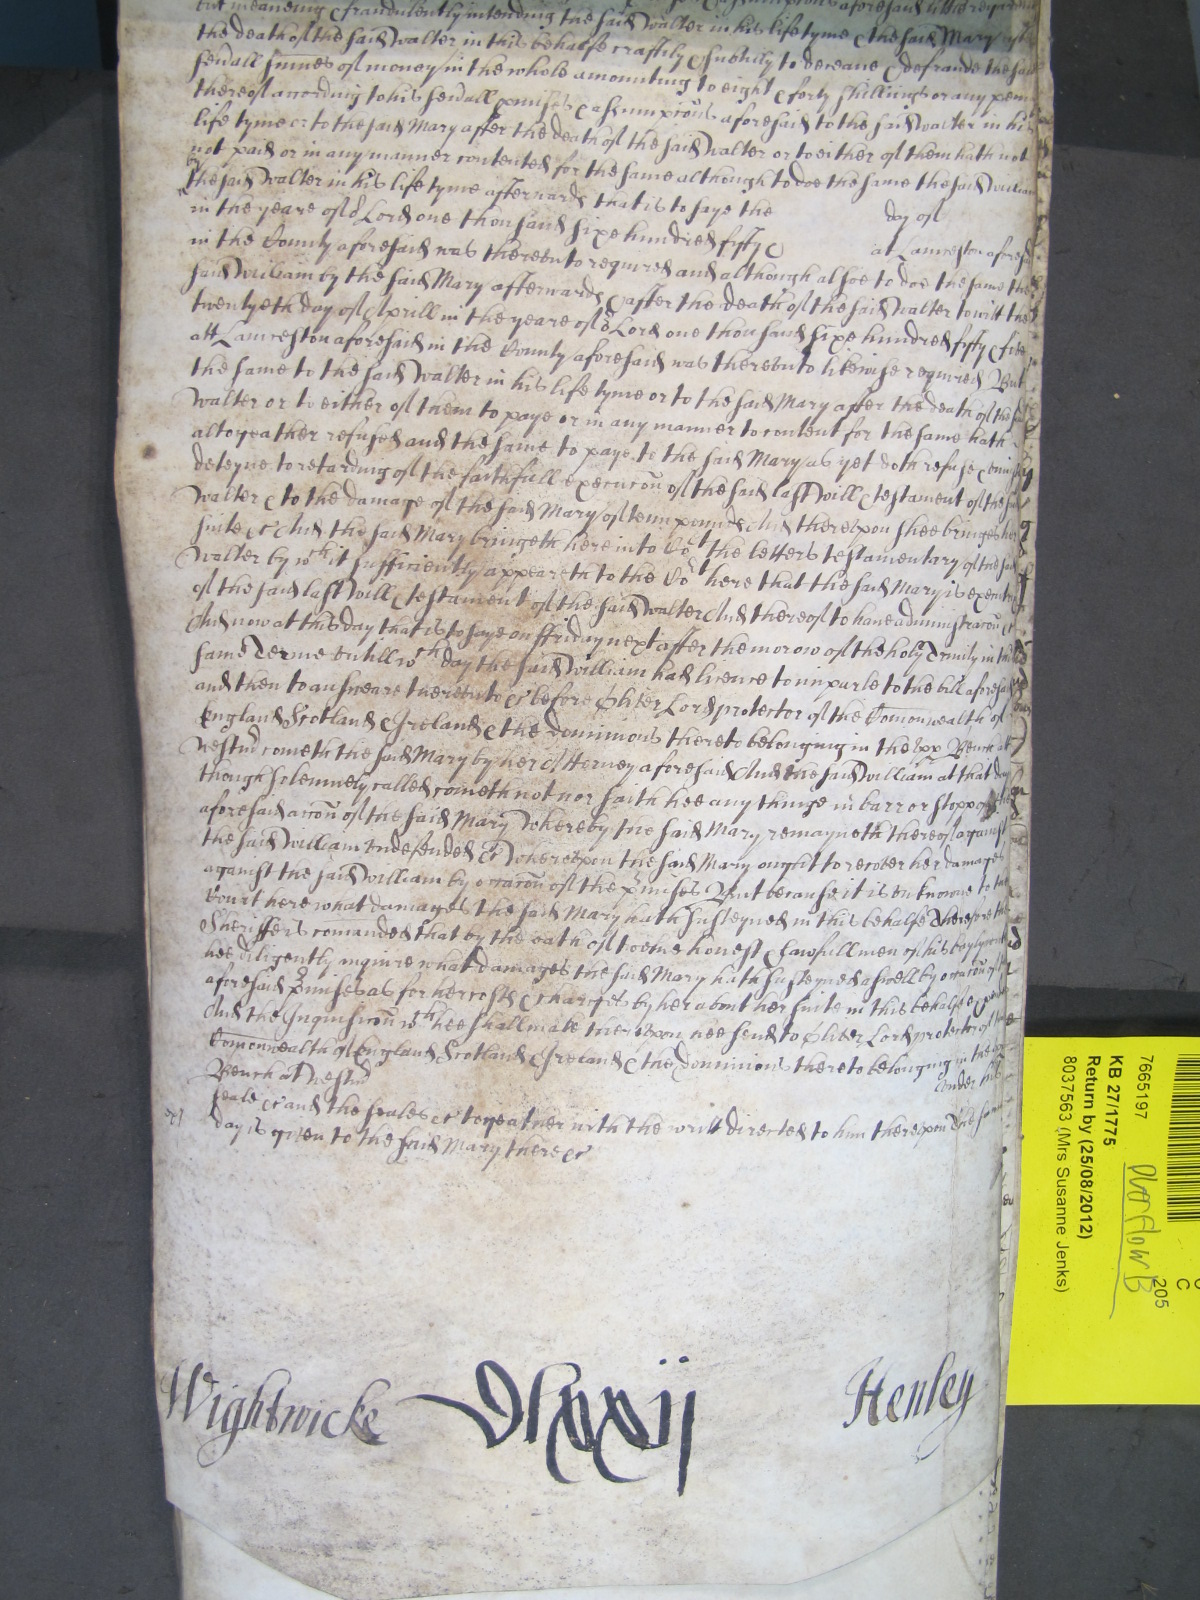 but meaneing & fraudulently intending the said Walter in his life tyme & the said Mary after
the death of the said Walter in this behalfe craftily & subtilly to deceave & defraude the said
severall summes of money in the whole amounting to eight & forty shillings or any penny
thereof according to his severall pmises & assumpcons aforesaid to the said Walter in his
life tyme or to the said Mary after the death of the said Walter or to either of them hath not
not paid or in any manner contented for the same although to doe the same the said William
by the said Walter in his life tyme afterwards that is to saye the day of
in the yeare of or Lord one thousand sixe hundred fifty & at Lanceston aforesd
in the County aforesaid was thereunto required and although alsoe to doe the same the
said William by the said Mary afterwards & after the death of the said Walter to witt the
twentyeth day of Aprill in the yeare of or Lord one thousand sixe hundred fifty & five
att Lanceston aforesaid in the County aforesaid was thereunto likewise required But
the same to the said Walter in his life tyme or to the said Mary after the death of the said
Walter or to either of them to paye or in any manner to content for the same hath
altogeather refused and the same to paye to the said Mary as yet doth refuse &
deteyne to retarding of the faithfull execucon of the said last will & testament of the said
Walter & to the damage of the said Mary of tenn pounds And thereupon shee bringes her
suite &c And the said Mary bringeth here into Cort the letters testamentary of the said
Walter by wch it sufficiently appeareth to the Cort here that the said Mary is execut
of the said last will & testament of the said Walter And thereof to have administracon &c
And now at this day that is to saye on ffriday next after the morow of the holy Trinity in this
same Terme untill wch day the said William had licence to imparle to the bill aforesaid
and then to answeare thereunto &c before Oliver Lord protector of the Comonwealth of
England Scotland & Ireland & the dominions thereto belonging in the upp Bench at
Westmr cometh the said Mary by her Atterney aforesaid And the said William at that day
though solemnely called cometh not nor saith hee any thinge in barr or stopp of the
aforesaid accon of the said Mary Whereby the said Mary remayneth thereof against
the said William undefended &c Whereupon the said Mary ought to recover her damages
against the said William by occacon of the pmises But because it is unknowne to the
Court here what damages the said Mary hath susteyned in this behalfe Therefore the
Sheriffe is comanded that by the oath of twelve honest & lawfull men of his baylywick
hee diligently inquire what damages the said Mary hath susteyned aswell by occacon of the
aforesaid pmises as for her costs & charges by her about her suite in this behalfe expended
And the Inquisicon wch hee shall make thereupon hee send to Oliver Lord protector of the
Comonwealth of England Scotland & Ireland & the dominions thereto belonging in the upp
Bench at Westmr under his
seale &c and the seales &c togeather with the writt directed to him thereupon The same
day is given to the said Mary there &c
Wightwicke Dlxxij Henley
7665197
KB 27/1775
Return by (25/08/2012)
8037563 (Mrs Susanne Jenks)
Overflow B
C
205